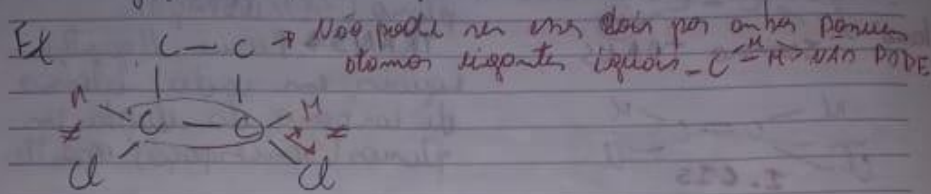 Ex C — C → Não pode ser em dois por ambos possuem
átomos ligantes iguais - C = H > NÃO PODE
H H
≠ C — C ≠
Cl Cl